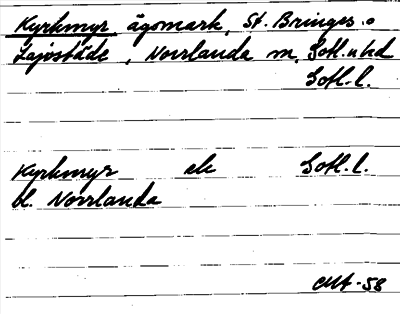 Kyrkmyr ägomark, St. Bringes o
Lajvstäde, Norrlanda sn, Gotl. n hd
Gotl. l.
Kyrkmyr ek Gotl. l.
bl. Norrlanda
-58